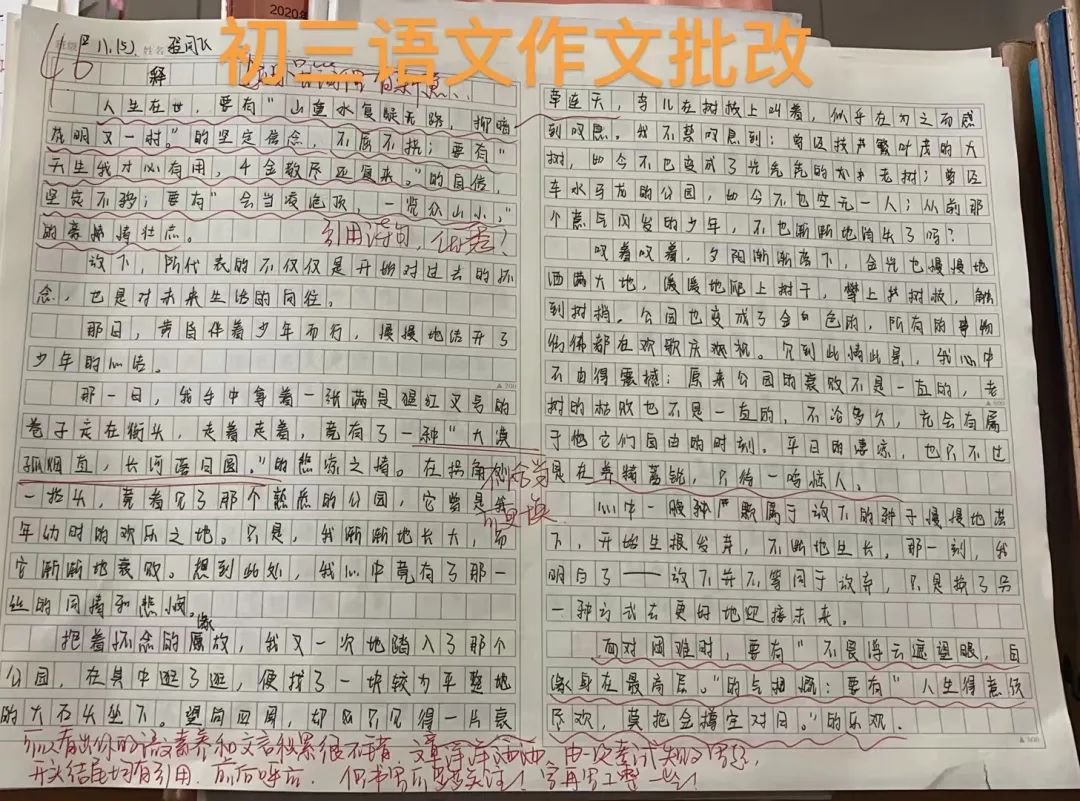 2020年
初三语文作文批改
46
姓名
释
人生在世，要有“山重水复疑无路，柳暗
花明又一村。”的坚定信念，不屈不挠；要有“
天生我才必有用，千金散尽还复来。”的自信，
坚定不移；要有“会当凌绝顶，一览众山小。”
的豪情壮志。
引用诗句，优秀！
放下，所代表的不仅仅是开始对过去的怀
念，也是对未来生活的向往。
那日，黄昏伴着少年而行，慢慢地话开了
少年的心语。
那一日，我手中拿着一张满是猩红叉号的
卷子走在街头，走着走着，竟有了一种“大漠
孤烟直，长河落日圆。”的悲凉之情。在拐角
一抬头，竟看见了那个熟悉的公园，它曾是我
年幼时的欢乐之地。只是，我渐渐地长大，
它渐渐地衰败。想到此处，我心中竟有了那一
丝的同情和悲悯。
抱着怀念的，我又一次地踏入了那个
公园，在其中逛了逛，便找了一块较为平整地
的大石头坐下。望向四周，却只见得一片衰
草连天，鸟儿在树枝上叫着，似乎在为之而感
到叹息。我不禁叹息到：曾经枝芦繁叶茂的大
树，如今不也变成了光秃秃的老树；曾经
车水马龙的公园，如今不也空无一人；从前那
个意气风发的少年，不也渐渐地消失了吗？
叹着叹着，夕阳渐渐落下，金光也慢慢地
洒满大地，缓缓地爬上树干，攀上树枝，触
到树梢。公园也变成了金色的，所有的事物
仿佛都在欢歌庆祝。见到此情此景，我心中
不由得震撼：原来公园的衰败不是一直的，老
树的枯败也不是一直的，不治多久，充会有属
于他它们自由的时刻。平日的凄凉，也只不过
是在养精蓄锐，只待一鸣惊人。
心中一股种属于放下的种子慢慢地落
下，开始生根发芽，不断地生长，那一刻，我
明白了——放下并不等同于放弃，只是换了另
一种方式去更好地迎接未来。
面对困难时，要有“不畏浮云遮望眼，自
缘身在最高层。”的气概；要有“人生得意须
尽欢，莫把金樽空对月。”的乐观。
开头结尾均有引用，前后呼应，